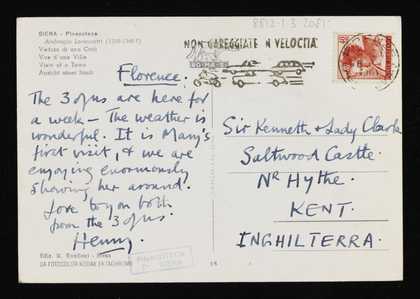 8812.1.3.2081
SIENA - Pinacoteca
Ambrogio Lorenzetti (1319-1348?)
Veduta di una Città
Vue d'une Ville
View of a Town
Ansicht einer Stadt
NON GAREGGIATE IN VELOCITÀ
Florence.
The 3 of us are here for
a week – The weather is
wonderful. It is Mary's
first visit, & we are
enjoying enormously
showing her around.
love to you both
from the 3 of us.
Henry.
Sir Kenneth & Lady Clark
Saltwood Castle.
Nr Hythe.
KENT.
INGHILTERRA.
PINACOTECA
SIENA
DA FOTOCOLOR KODAK EKTACHROME